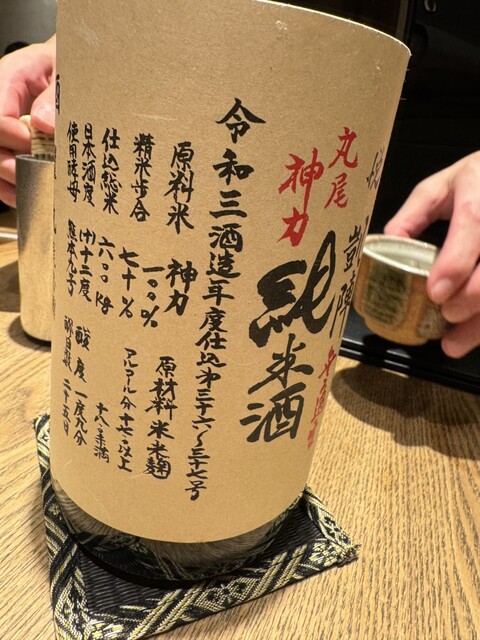 凱陣
丸尾
神力
純米酒
令和三酒造年度仕込第三十六〜三十七号
原料米 神力 一〇〇%
原材料 米 米麹
精米歩合 七十%
アルコール分 十七・以上
十八・未満
仕込総米 六〇〇kg
酸度 一度九分
日本酒度 (+)十二度
使用酵母 熊本九号
醪日数 二十五日